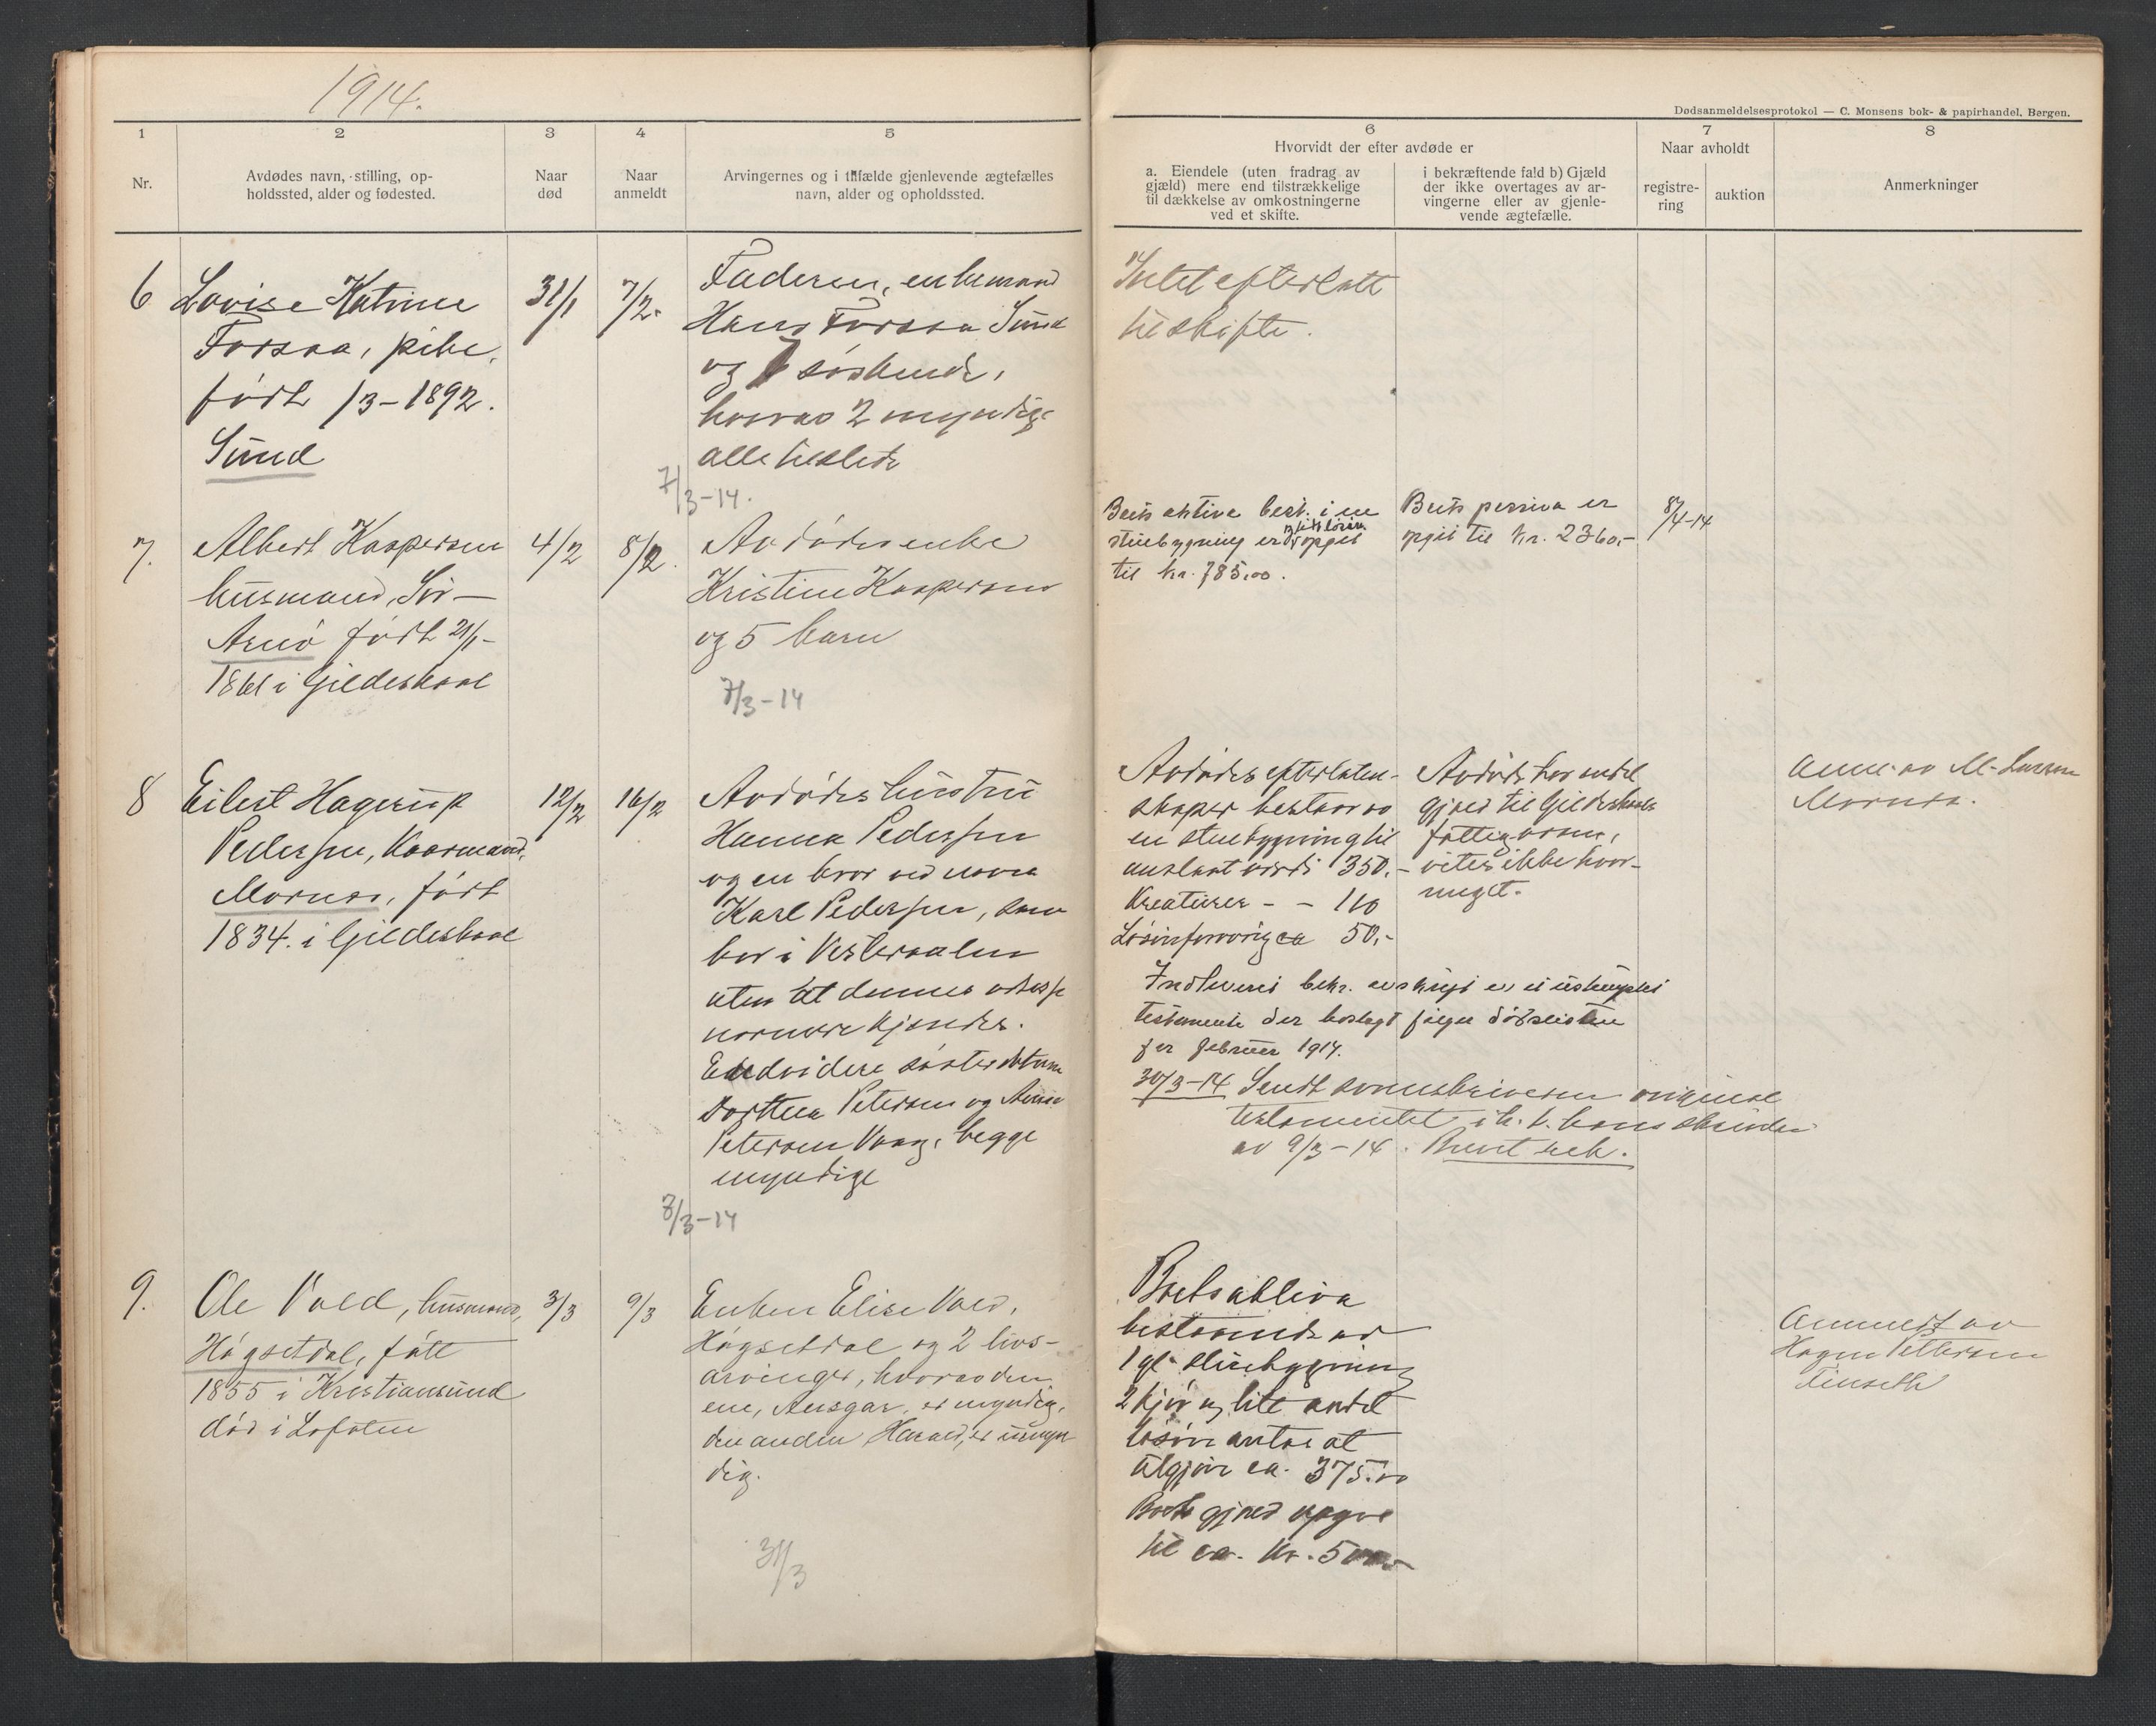 1914.
Dødsanmeldelsesprotokol — C. Monsens bok- & papirhandel, Bergen.
1
2
3
4
5
6
7
8
Nr.
Avdødes navn, stilling, op-
holdssted, alder og fødested.
Naar
død
Naar
anmeldt
Arvingernes og i tilfælde gjenlevende ægtefælles
navn, alder og opholdssted.
Hvorvidt der efter avdøde er
a. Eiendele (uten fradrag av
gjæld) mere end tilstrækkelige
til dækkelse av omkostningerne
ved et skifte.
i bekræftende fald b) Gjæld
der ikke overtages av ar-
vingerne eller av gjenle-
vende ægtefælle.
Naar avholdt
registre-
ring
auktion
Anmerkninger
6
Lovise Katrine
Forsaa, pike,
født /3-1892.
Sund
31/1
7/2.
Faderen, enkemand
Hans Forsaa Sund
og søskende,
hvorav 2 myndige
alle tilstede
7/3-14.
Intet efterlatt
til skifte.
7.
Albert Kaspersen
husmand, Sør-
Arnø født 21/1-
1861 i Gildeskaal
4/2
8/2.
Avdødes enke
Kristine Kaspersen
og 5 barn
7/3-14
Boets aktiva best. i en
stuebygning og litt løsøre er opgit
til kr. 785,00.
Boets passiva er
opgit til kr. 2360,-
8/4-14
8
Eilert Hagerup
Pedersen, Kaarmand,
Mornes, født
1834. i Gildeskaal
12/2
16/2
Avdødes hustru
Hanna Pedersen
og en bror ved navn
Karl Pedersen, som
bor i Vesteraalen
uten at dennes adresse
nærmere kjendes.
Endvidere søsterdøtrene
Dorthea Petersen og Anna
Petersen Vaag, begge
myndige
3/3-14
Avdødes efterlaten-
skaper bestaar av
en stuebygning til
anslaat værdi 350,-
Kreaturer - - 110
Løsøre forøvrig ca 50,-
Avdøde har endel
gjæld til Gildeskaals
fattigvæsen,
vites ikke hvor-
meget.
Indleveret bekr. avskrift av et ustemplet
testamente der bevilget følger dødslisten
for februar 1914.
30/3-14 Sendt sorenskriveren original
testamentet i h. t. hans skrivelse
av 9/3-14. Brevet rek.
Anm. av M. Larsen
Mornes.
9.
Ole Vold, husmand,
Høgsetdal, født
1855 i Kristiansund
død i Lofoten
3/3
9/3
Enken Elise Vold,
Høgsetdal og 2 livs-
arvinger, hvorav den
ene, Ansgar, er myndig,
den anden Harald, er umyn
dig.
31/3
Boets aktiva
bestaaende av
1 gl. stuebygning
2 kjør og lite andet
løsøre antas at
utgjøre ca. 375.00
Boets gjæld opgives
til ca. kr. 500,-
Anmeldt av
Hagen Pettersen
Finseth